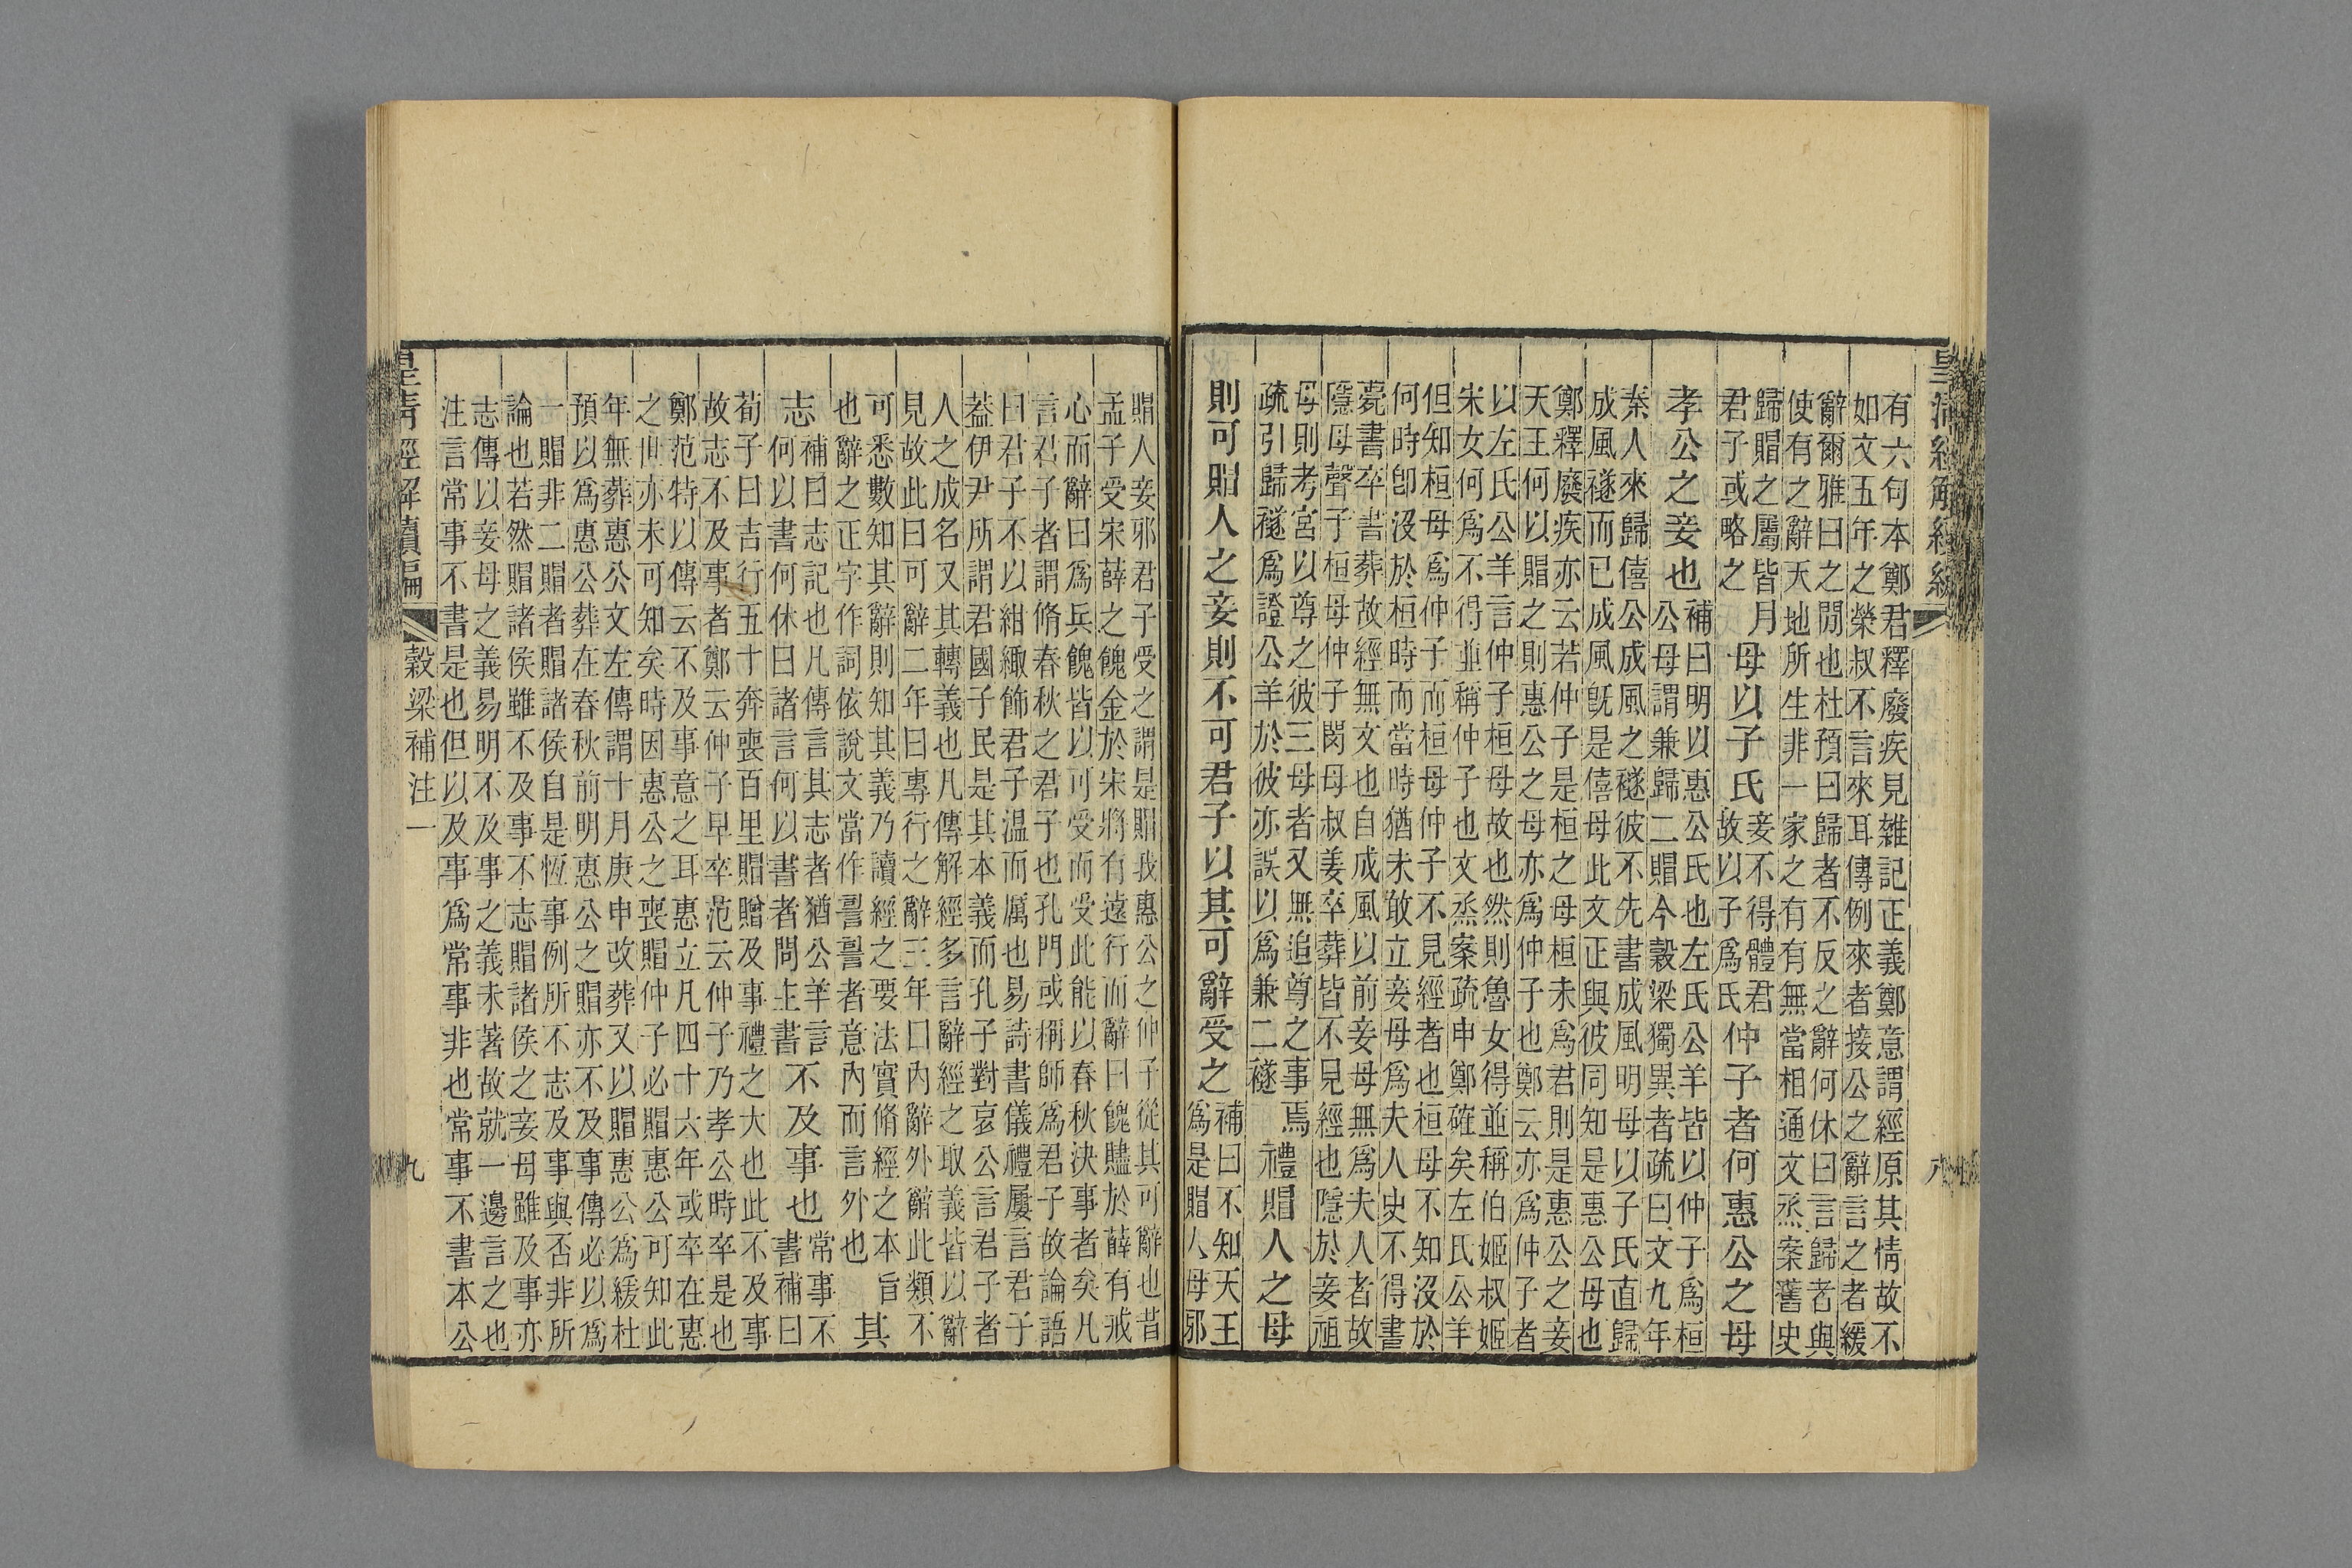 有六句本鄭君釋廢疾見雜記正義鄭意謂經原其情故不
如文五年之榮叔不言來耳傳例來者接公之辭言之者緩
辭爾雅曰之閒也杜預曰歸者不反之辭何休曰言歸者與
使有之辭天地所生非一家之有有無當相通文烝案舊史
歸賵之屬皆月
君子或略之
母以子氏
妾不得體君
故以子爲氏
仲子者何惠公之母
孝公之妾也
補曰明以惠公氏也左氏公羊皆以仲子爲桓
公母謂兼歸二賵今穀梁獨異者疏曰文九年
秦人來歸僖公成風之襚彼不先書成風明母以子氏直歸
成風襚而已成風旣是僖母此文正與彼同知是惠公母也
鄭釋廢疾亦云若仲子是桓之母桓未爲君則是惠公之妾
天王何以賵之則惠公之母亦爲仲子也鄭云亦爲仲子者
以左氏公羊言仲子桓母故也然則魯女得並稱伯姬叔姬
宋女何爲不得並稱仲子也文烝案疏申鄭確矣左氏公羊
但知桓母爲仲子而桓母仲子不見經者也桓母不知沒於
何時卽沒於桓時而當時猶未敢立妾母爲夫人史不得書
薨書卒書葬故經無文也自成風以前妾母無爲夫人者故
隱母聲子桓母仲子閔母叔姜卒葬皆不見經也隱於妾祖
母則考宮以尊之彼三母者又無追尊之事焉
疏引歸襚爲證公羊於彼亦誤以爲兼二襚
禮賵人之母
則可賵人之妾則不可君子以其可辭受之
補曰不知天王
爲是賵人母邪
賵人妾邪君子受之謂是賵我惠公之仲子從其可辭也昔
孟子受宋薛之餽金於宋將有遠行而辭曰餽贐於薛有戒
心而辭曰爲兵餽皆以可受而受此能以春秋決事者矣凡
言君子者謂脩春秋之君子也孔門或稱師爲君子故論語
曰君子不以紺緅飾君子溫而厲也易詩書儀禮屢言君子
葢伊尹所謂君國子民是其本義而孔子對哀公言君子者
人之成名又其轉義也凡傳解經多言辭經之取義皆以辭
見故此曰可辭二年曰專行之辭三年曰內辭外辭此類不
可悉數知其辭則知其義乃讀經之要法實脩經之本旨
也辭之正字作詞依說文當作䛐䛐者意內而言外也
其
志
補曰志記也凡傳言其志者猶公羊言
何以書何休曰諸言何以書者問主書
不及事也
常事不
書補曰
荀子曰吉行五十奔喪百里賵贈及事禮之大也此不及事
故志不及事者鄭云仲子早卒范云仲子乃孝公時卒是也
鄭范特以傳云不及事意之耳惠立凡四十六年或卒在惠
之世亦未可知矣時因惠公之喪賵仲子必賵惠公可知此
年無葬惠公文左傳謂十月庚申改葬又以賵惠公爲緩杜
預以爲惠公葬在春秋前明惠公之賵亦不及事傳必以爲
一賵非二賵者賵諸侯自是恆事例所不志及事與否非所
論也若然賵諸侯雖不及事不志賵諸侯之妾母雖及事亦
志傳以妾母之義易明不及事之義未著故就一邊言之也
注言常事不書是也但以及事爲常事非也常事不書本公
皇清經解續編
穀梁補注一
九